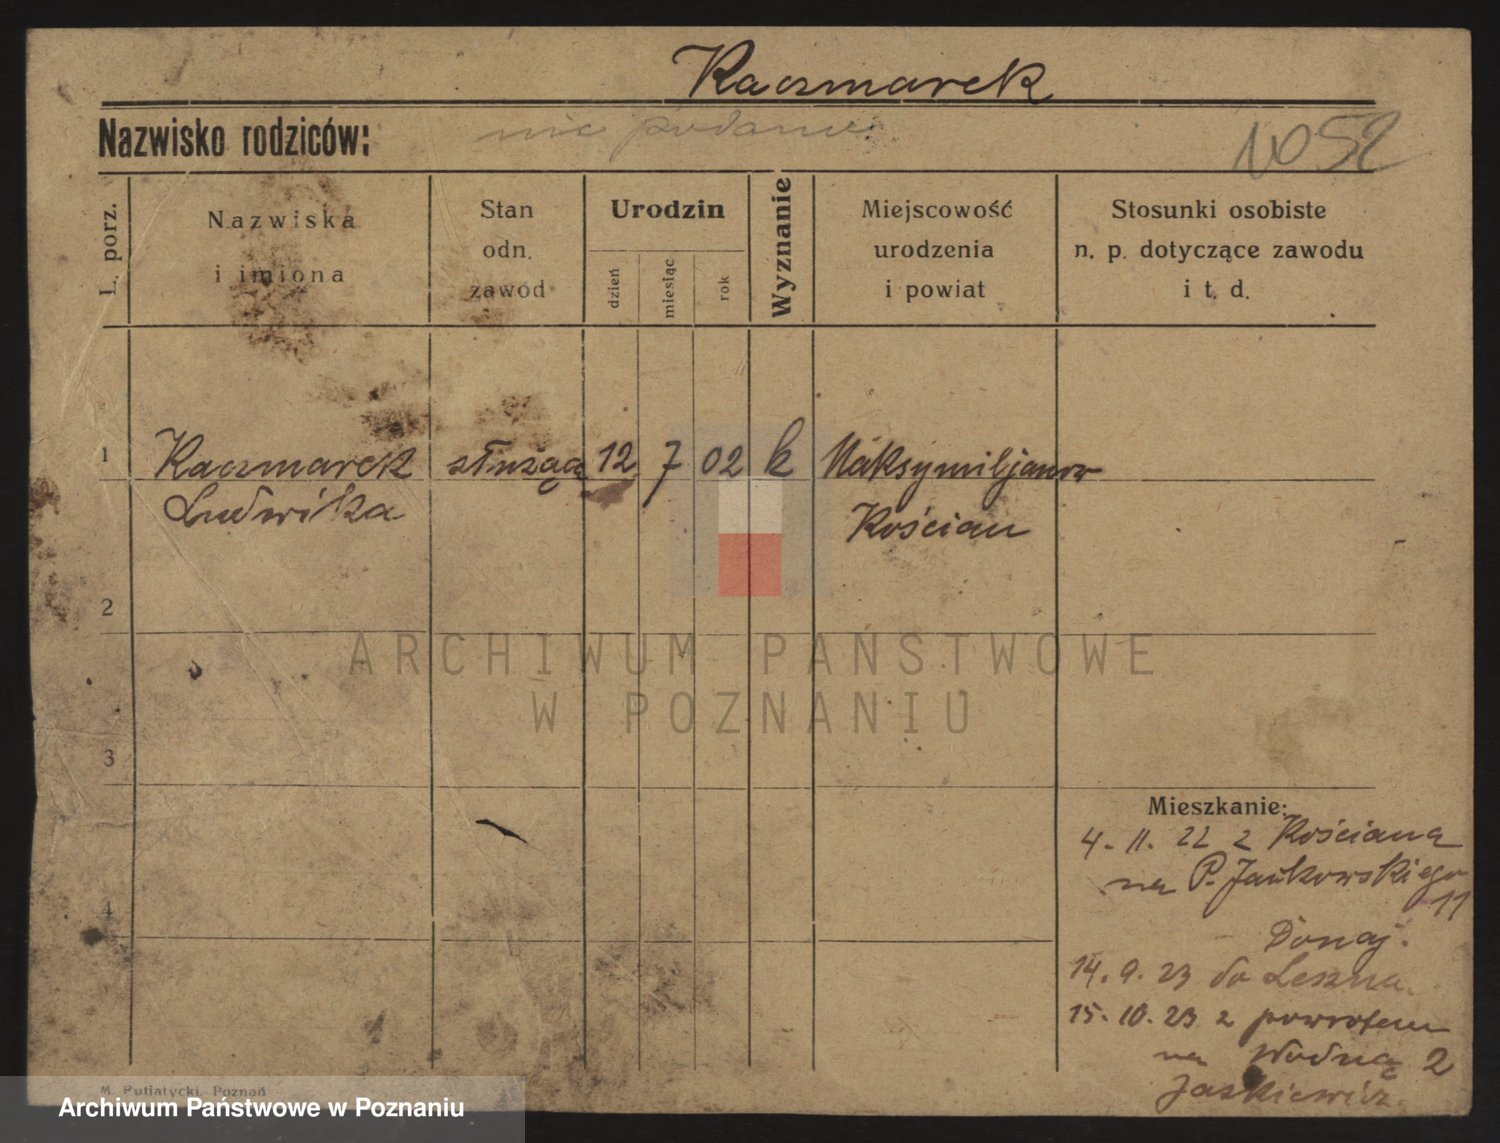 Kaczmarek
Nazwisko rodziców: nie podane
1052
L. porz.
Nazwiska
i imiona
Stan
odn.
zawód
Urodzin
dzień
miesiąc
rok
Wyznanie
Miejscowość
urodzenia
i powiat
Stosunki osobiste
n. p. dotyczące zawodu
i t. d.
1 Kaczmarek służąca 12 7 02 k Maksymiljanow
Ludwika Kościan
2
ARCHIWUM PAŃSTWOWE
W POZNANIU
3
Mieszkanie:
4. 11. 22 z Kościana
na P. Jackowskiego
11
4
Donaj.
14. 9. 23 do Leszna.
15. 10. 23 z powrotem
na Wodną 2
Jaskiewicz.
M. Putiatycki, Poznań
Archiwum Państwowe w Poznaniu